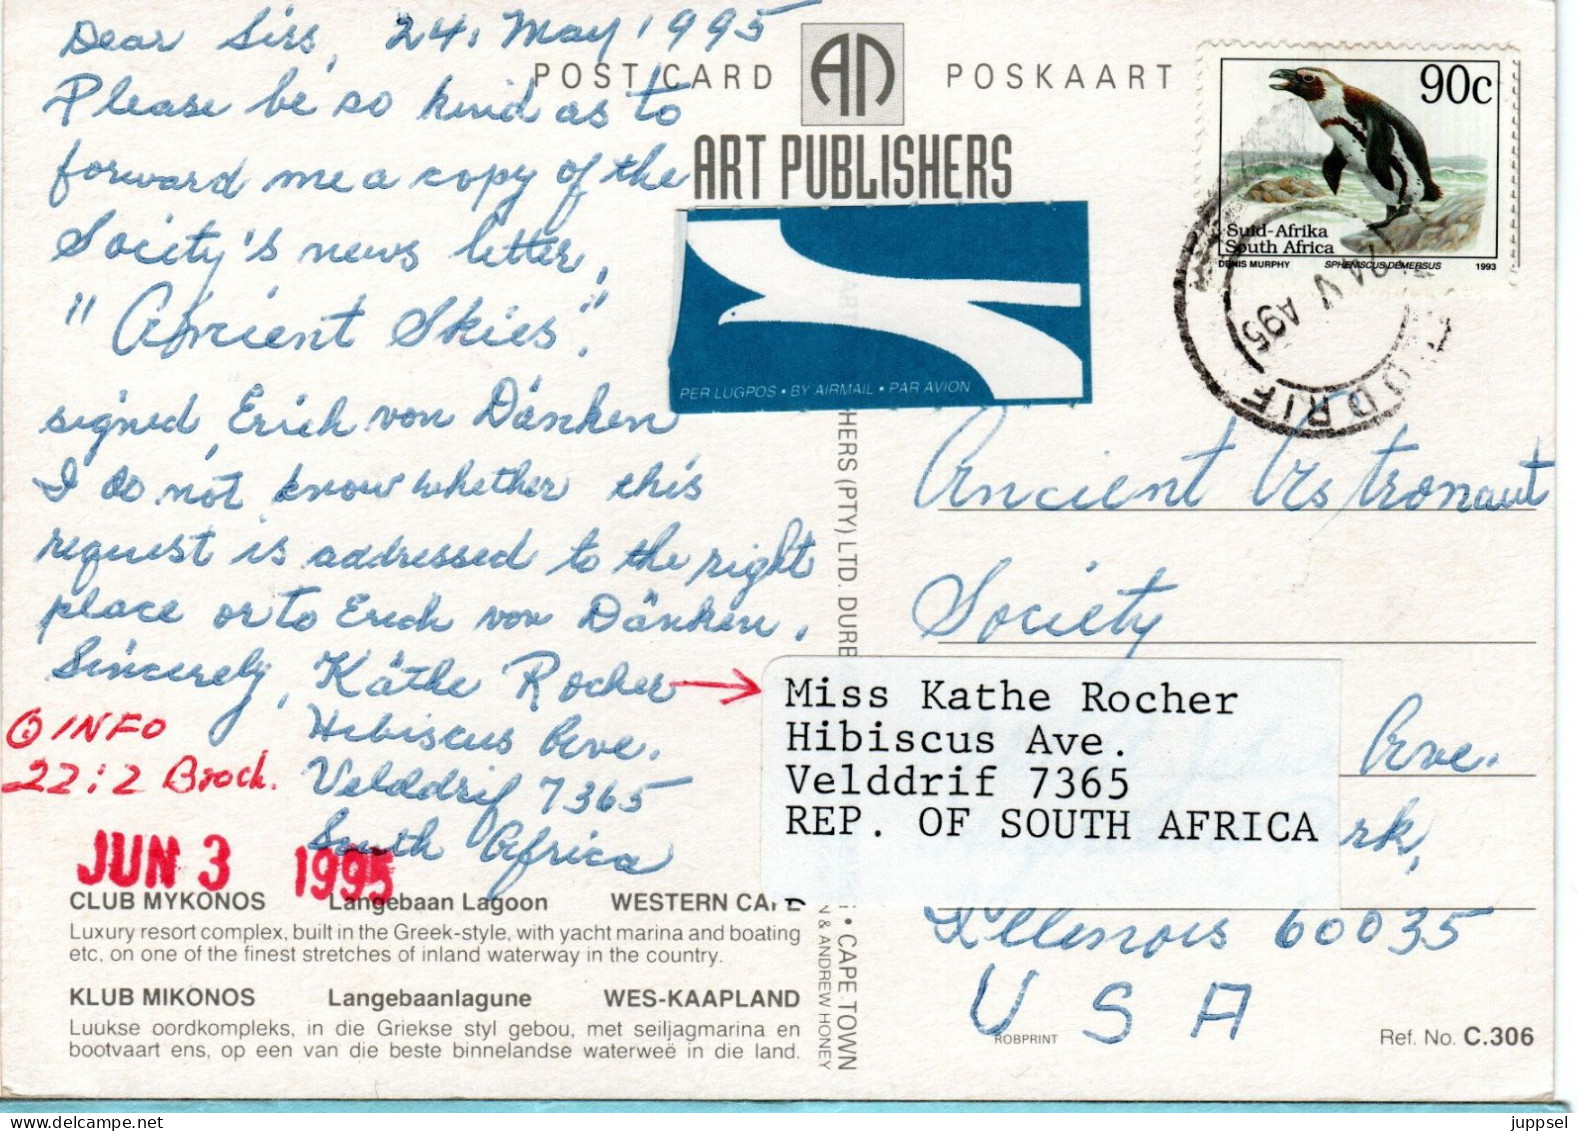 Dear Sirs, 24. May 1995
Please be so kind as to
forward me a copy of the
Society's news letter,
"Ancient Skies",
signed, Erich von Däniken
I do not know whether this
request is addressed to the right
place or to Erich von Däniken.
Sincerely, Käthe Rocher
Hibiscus Ave.
Velddrif 7365
South Africa
INFO
22:2 Broch.
JUN 3 1995
CLUB MYKONOS Langebaan Lagoon WESTERN CAPE
Luxury resort complex, built in the Greek-style, with yacht marina and boating
etc, on one of the finest stretches of inland waterway in the country.
KLUB MIKONOS Langebaanlagune WES-KAAPLAND
Luukse oordkompleks, in die Griekse styl gebou, met seiljagmarina en
bootvaart ens, op een van die beste binnelandse waterweë in die land.
POST CARD AP POSKAART
ART PUBLISHERS
PER LUGPOS • BY AIRMAIL • PAR AVION
HERS (PTY) LTD. DURB
• CAPE TOWN
N & ANDREW HONEY
90c
Suid-Afrika
South Africa
DENIS MURPHY SPHENISCUS DEMERSUS 1993
V A95
DRIF
Ancient Astronaut
Society
Ave.
rk,
Illinois 60035
U S A
Miss Kathe Rocher
Hibiscus Ave.
Velddrif 7365
REP. OF SOUTH AFRICA
ROBPRINT
Ref. No. C.306
juppsel